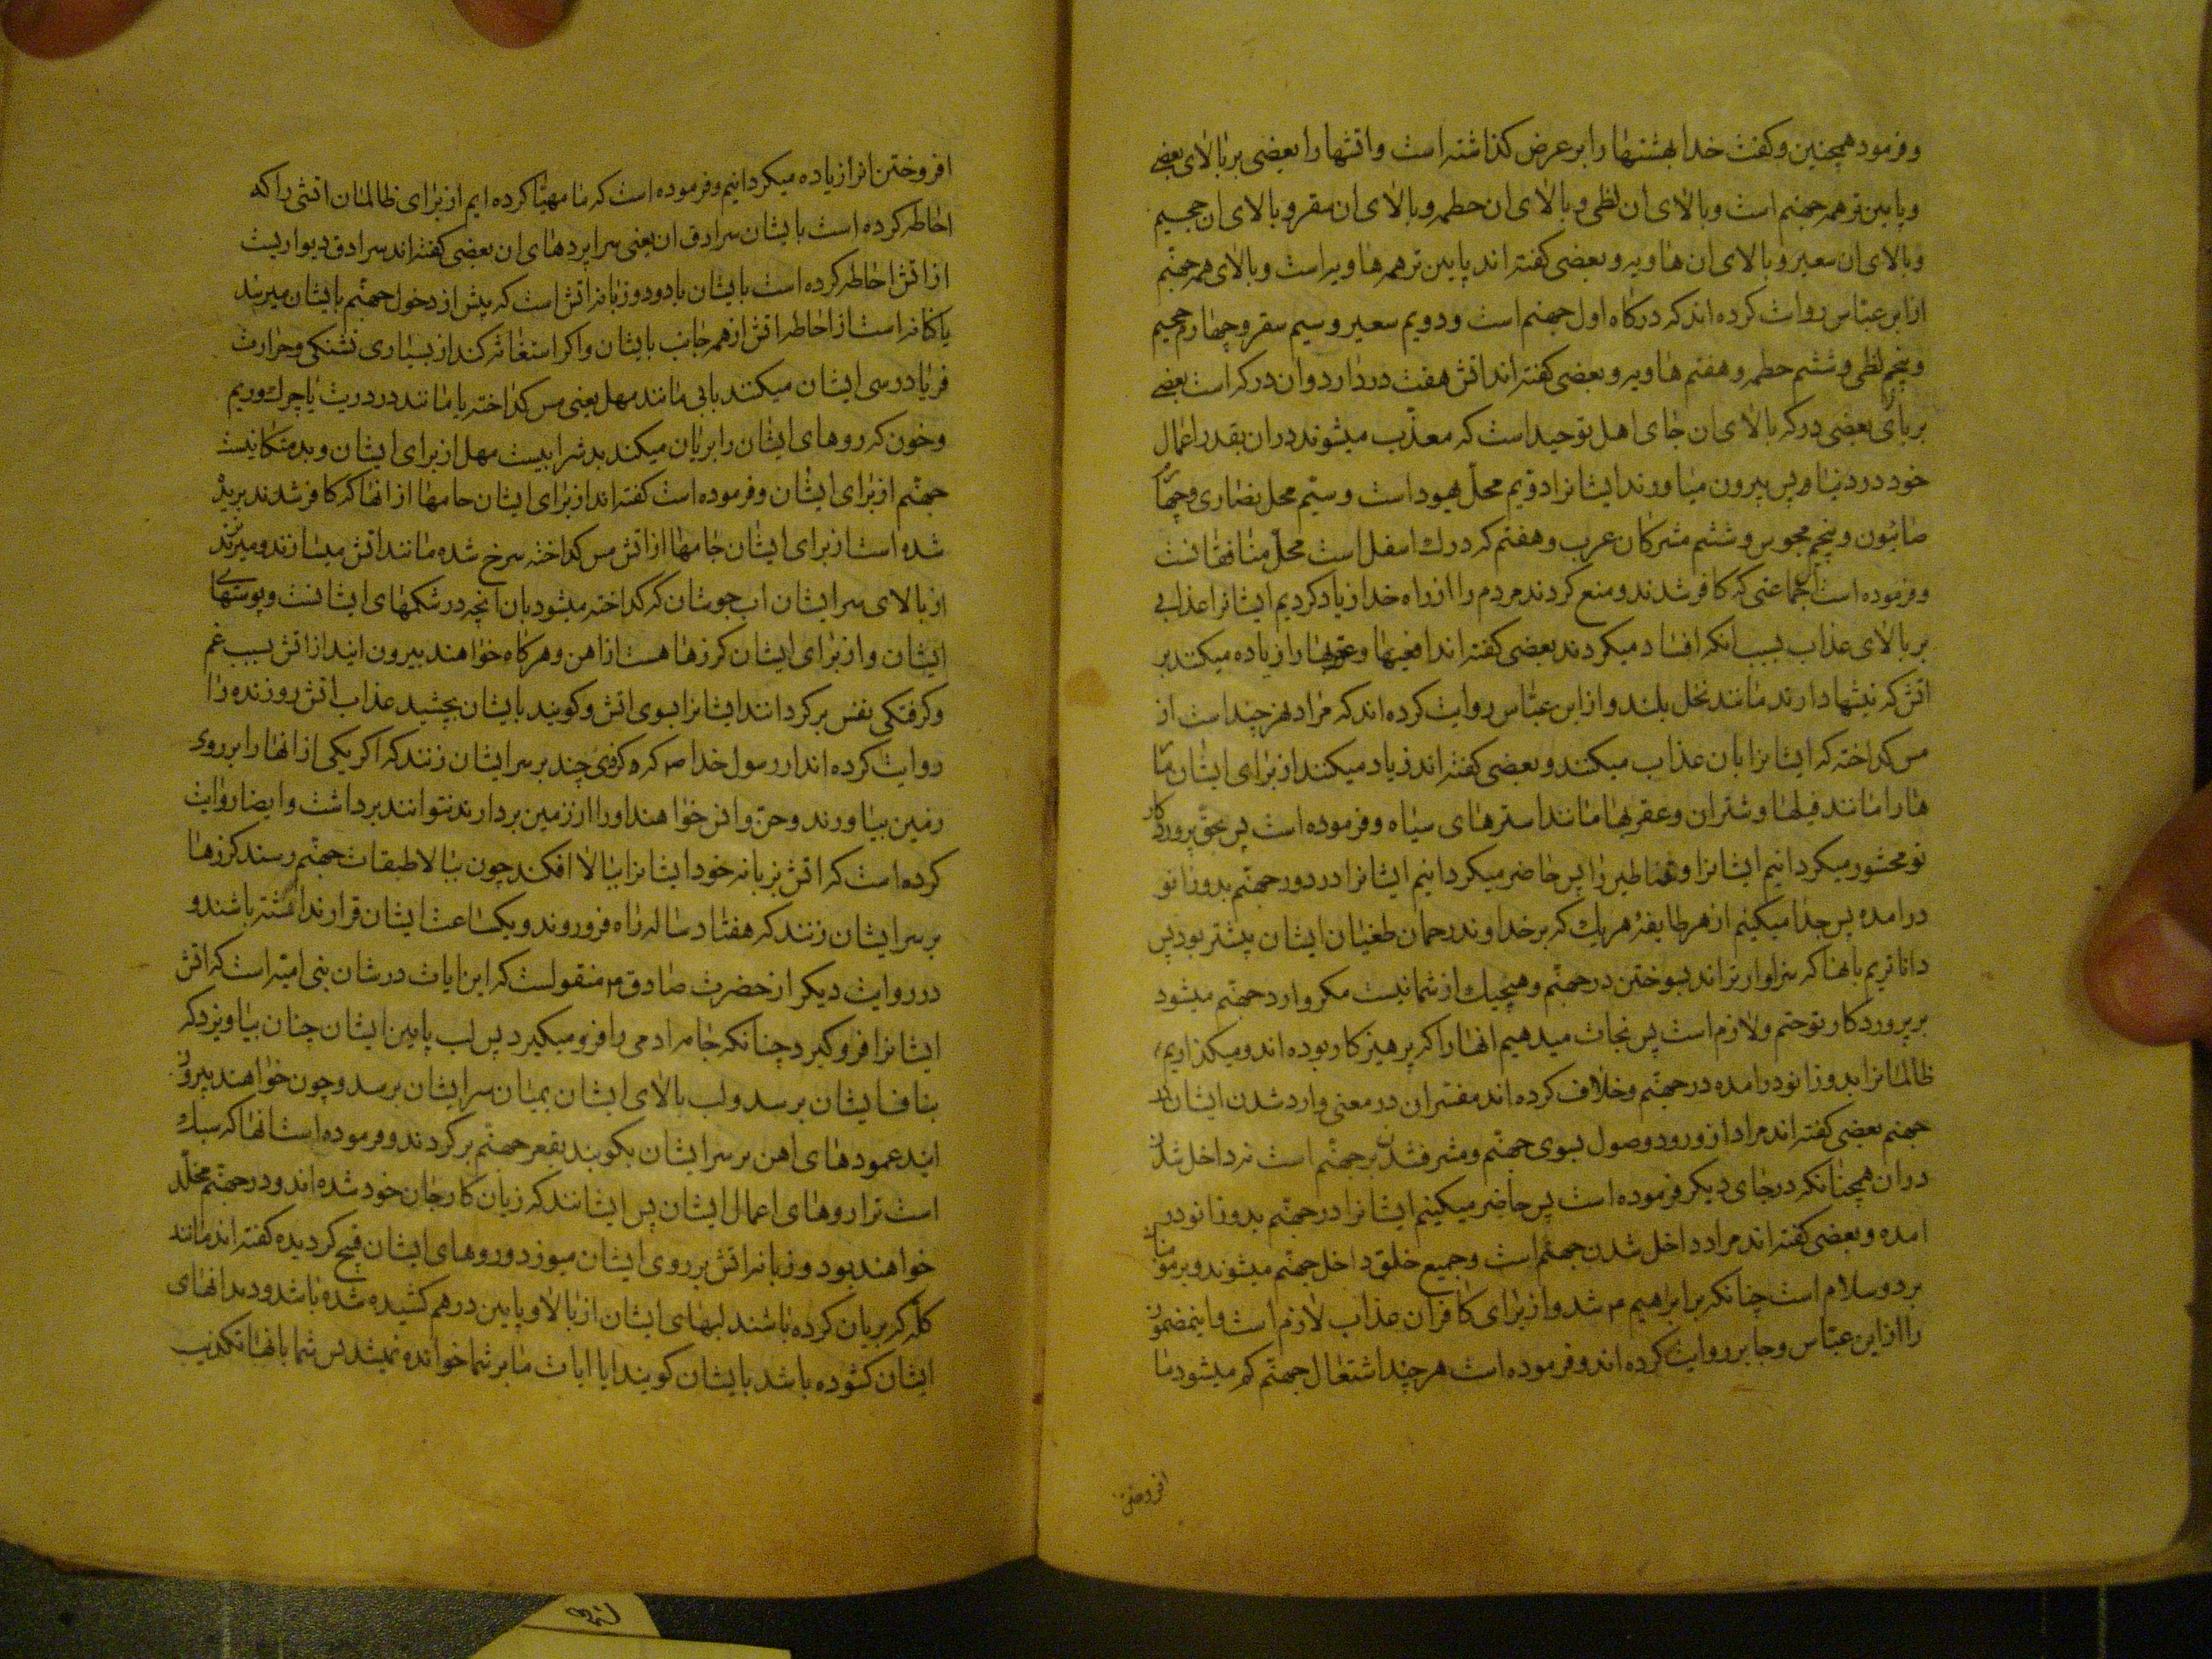 و فرمود همچنین و کفت خدا بهشتها را بر عرض کذاشته است و اتشها را بعضی بر بالای بعضی
و پایین تر همه جهنم است و بالای ان لظی و بالای ان حطمه و بالای ان سقر و بالای ان جحیم
و بالای ان سعیر و بالای ان هاویه و بعضی کفته اند پایین تر همه هاویه است و بالای همه جهنم
از ابن عباس روایت کرده اند که درکاه اول جهنم است و دویم سعیر و سیم سقر و چهارم جحیم
و پنجم لظی و ششم حطمه و هفتم هاویه و بعضی کفته اند اتش هفت در دارد و ان درکه است بعضی
بر بالای بعضی درکه بالای ان جای اهل توحید است که معذب میشوند در ان بقدر اعمال
خود در دنیا و پس بیرون میاورند ایشانرا دویم محل یهود است و سیم محل نصاری و چهارم
صابئون و پنجم مجوس و ششم مشرکان عرب و هفتم که درك اسفل است محل منافقانست
و فرموده است جماعتی که کافر شدند و منع کردند مردم را از راه خدا زیاد کردیم ایشانرا عذابی
بر بالای عذاب بسبب انکه افساد میکردند بعضی کفته اند افعیها و عقربها را زیاده میکند بر
اتش که نیشها دارند مانند نخل بلند و از ابن عباس روایت کرده اند که مراد نهر چند است از
مس کداخته که ایشانرا بان عذاب میکنند و بعضی کفته اند زیاد میکند از برای ایشان مار
ها را مانند فیلها و شتران و عقربها مانند استرهای سیاه و فرموده است پس بحق پروردکار
تو محشور میکردانیم ایشانرا و شیاطین را پس حاضر میکردانیم ایشانرا در دور جهنم بدو زانو
در امده پس جدا میکنیم از هر طایفهٔ هر یك که بر خداوند رحمان طغیان ایشان بیشتر بود پس
داناتریم بانها که سزاوارترند بسوختن در جهنم و هیچیك از شما نیست مکر وارد جهنم میشود
بر پروردکار تو حتم و لازم است پس نجات میدهیم انها را که پرهیزکار بوده اند و میکذاریم
ظالمانرا بدو زانو در امده در جهنم و خلاف کرده اند مفسران در معنی وارد شدن ایشان در
جهنم بعضی کفته اند مراد از ورود وصول بسوی جهنم و مشرف شدن بر جهنم است نه داخل شدن
در ان همچنانکه در جای دیکر فرموده است پس حاضر میکنیم ایشانرا در جهنم بدو زانو در
امده و بعضی کفته اند مراد داخل شدن جهنم است و جمیع خلق داخل جهنم میشوند و بر مومنان
برد و سلام است چنانکه بر ابراهیم ۴ شد و از برای کافران عذاب لازم است و اینمضمون
را از ابن عباس و جابر روایت کرده اند و فرموده است هر چند اشتعال جهنم کم میشود ما
افروختن
افروختن انرا زیاده میکردانیم و فرموده است که ما مهیا کرده ایم از برای ظالمان اتشی را که
احاطه کرده است بایشان سرادق ان یعنی سراپردهای ان بعضی کفته اند سرادق دیواریست
از اتش احاطه کرده است بایشان یا دود و زبانه اتش است که پیش از دخول جهنم بایشان میرسد
یا کنایه است از احاطه اتش از همه جانب بایشان و اکر استغاثه کنند از بسیاری تشنکی و حرارت
فریادرسی ایشان میکنند بابی مانند مهل یعنی مس کداخته یا مانند درد زیت یا چرك و ریم
و خون که روهای ایشان را بریان میکند بد شرابیست مهل از برای ایشان و بد متکائیست
جهنم از برای ایشان و فرموده است کفته اند از برای ایشان جامها از انها که کافر شدند بریده
شده است از برای ایشان جامها از اتش مس کداخته سرخ شده مانند اتش میسازند و میریزند
از بالای سر ایشان اب جوشان که کداخته میشود بان انچه در شکمهای ایشانست و پوستهای
ایشان و از برای ایشان کرزها هست از اهن و هر کاه خواهند بیرون ایند از اتش بسبب غم
و کرفتکی نفس برکردانند ایشانرا بسوی اتش و کویند بایشان بچشید عذاب اتش سوزنده را
روایت کرده اند از رسول خدا ص که کرزی چند بر سر ایشان زنند که اکر یکی از انها را بر روی
زمین بیاورند و جن و انس خواهند او را از زمین بردارند نتوانند برداشت و ایضا روایت
کرده است که اتش بزبانه خود ایشانرا ببالا افکند چون ببالا طبقات جهنم رسند کرزها
بر سر ایشان زنند که هفتاد ساله راه فرو روند و یکساعت ایشان قرار نداشته باشند و
در روایت دیکر از حضرت صادق ۴ منقولست که این ایات در شان بنی امیه است که اتش
ایشانرا فرو کیرد چنانکه جامه ادمی را فرو میکیرد پس لب پایین ایشان چنان بیاویزد که
بناف ایشان برسد و لب بالای ایشان بمیان سر ایشان برسد و چون خواهند بیرون
ایند عمودهای اهن بر سر ایشان بکوبند بقعر جهنم بر کردند و فرموده است انها که سبك
است ترازوهای اعمال ایشان پس ایشانند که زیان کار جان خود شده اند و در جهنم مخلد
خواهند بود و زبانه اتش بر روی ایشان میوزد و روهای ایشان قبیح کردیده کفته اند مانند
کله که بریان کرده باشند لبهای ایشان از بالا و پایین درهم کشیده شده باشد و دندانهای
ایشان کشوده باشد بایشان کویند ایا ایات ما بر شما خوانده نمیشد پس شما بانها تکذیب